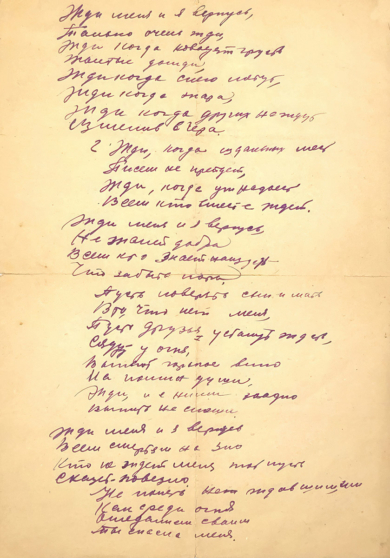 Жди меня и я вернусь,
Только очень жди,
Жди когда наводят грусть
Желтые дожди,
Жди когда снега метут,
Жди когда жара,
Жди когда других не ждут
Изменив вчера
2 Жди, когда из дальних мест
Писем не придет,
Жди, когда уж надоест
Всем кто вместе ждет.
Жди меня и я вернусь,
Не желай добра
Всем кто знает наизусть
Что забыть пора
Пусть поверят сын и мать
В то, что нет меня,
Пусть друзья устанут ждать,
Сядут у огня,
Выпьют горькое вино
На помин души,
Жди, и с ними заодно
Выпить не спеши
Жди меня и я вернусь
Всем смертям на зло
Кто не ждет меня тот пусть
Скажет повезло
Не понять не ждавшим им
Как среди огня
Ожиданием своим
Ты спасла меня.